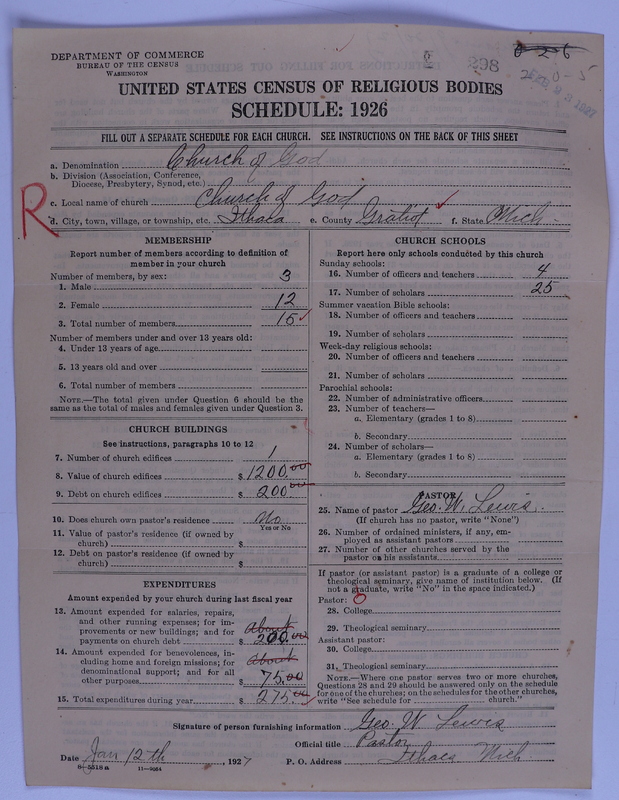 DEPARTMENT OF COMMERCE
BUREAU OF THE CENSUS
WASHINGTON
298
0-26
0-5
UNITED STATES CENSUS OF RELIGIOUS BODIES
SCHEDULE: 1926
FILL OUT A SEPARATE SCHEDULE FOR EACH CHURCH. SEE INSTRUCTIONS ON THE BACK OF THIS SHEET
a. Denomination Church of God
b. Division (Association, Conference,
Diocese, Presbytery, Synod, etc.)
R
c. Local name of church Church of God
d. City, town, village, or township, etc. Ithaca e. County Gratiot f. State Mich
MEMBERSHIP
Report number of members according to definition of
member in your church
Number of members, by sex:
1. Male 3
2. Female 12
3. Total number of members 15
Number of members under and over 13 years old:
4. Under 13 years of age
5. 13 years old and over
6. Total number of members
NOTE.—The total given under Question 6 should be the
same as the total of males and females given under Question 3.
CHURCH BUILDINGS
See instructions, paragraphs 10 to 12
7. Number of church edifices 1
8. Value of church edifices $ 1200.00
9. Debt on church edifices $ 200.00
10. Does church own pastor's residence No
Yes or No
11. Value of pastor's residence (if owned by
church) $
12. Debt on pastor's residence (if owned by
church) $
EXPENDITURES
Amount expended by your church during last fiscal year
13. Amount expended for salaries, repairs,
and other running expenses; for im-
provements or new buildings; and for
payments on church debt About $ 200.00
14. Amount expended for benevolences, in-
cluding home and foreign missions; for
denominational support; and for all
other purposes About $ 75.00
15. Total expenditures during year $ 275.00
CHURCH SCHOOLS
Report here only schools conducted by this church
Sunday schools:
16. Number of officers and teachers 4
17. Number of scholars 25
Summer vacation Bible schools:
18. Number of officers and teachers
19. Number of scholars
Week-day religious schools:
20. Number of officers and teachers
21. Number of scholars
Parochial schools:
22. Number of administrative officers
23. Number of teachers—
a. Elementary (grades 1 to 8)
b. Secondary
24. Number of scholars—
a. Elementary (grades 1 to 8)
b. Secondary
PASTOR
25. Name of pastor Geo. W. Lewis.
(If church has no pastor, write "None")
26. Number of ordained ministers, if any, em-
ployed as assistant pastors
27. Number of other churches served by the
pastor or his assistants
If pastor (or assistant pastor) is a graduate of a college or
theological seminary, give name of institution below. (If
not a graduate, write "No" in the space indicated.)
Pastor: 0
28. College
29. Theological seminary
Assistant pastor:
30. College
31. Theological seminary
NOTE.—Where one pastor serves two or more churches,
Questions 28 and 29 should be answered only on the schedule
for one of the churches; on the schedules for the other churches,
write "See schedule for church."
Signature of person furnishing information Geo. W Lewis
Official title Pastor
Date Jan 12th, 1927 P. O. Address Ithaca Mich
8-5518a 11-9064